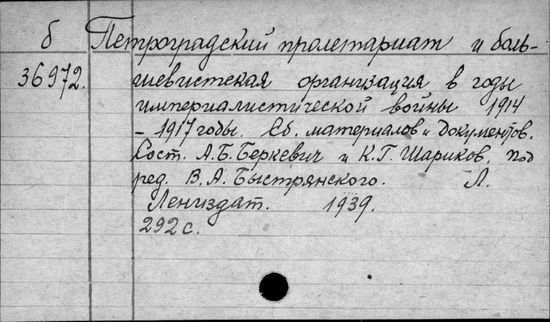 б Петроградский пролетариат и боль-
36972. шевистская организация в годы
империалистической войны 1914
– 1917 годы. Сб. материалов и документов.
Сост. А.Б. Беркевич и К.Г. Шариков, под
ред. В.А. Быстрянского. Л.
Лениздат. 1939.
292 с.